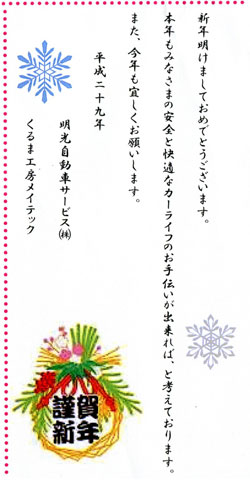 新年明けましておめでとうございます。
本年もみなさまの安全と快適なカーライフのお手伝いが出来れば、と考えております。
また、今年も宜しくお願いします。
平成二十九年
明光自動車サービス㈱
くるま工房メイテック
謹賀
新年